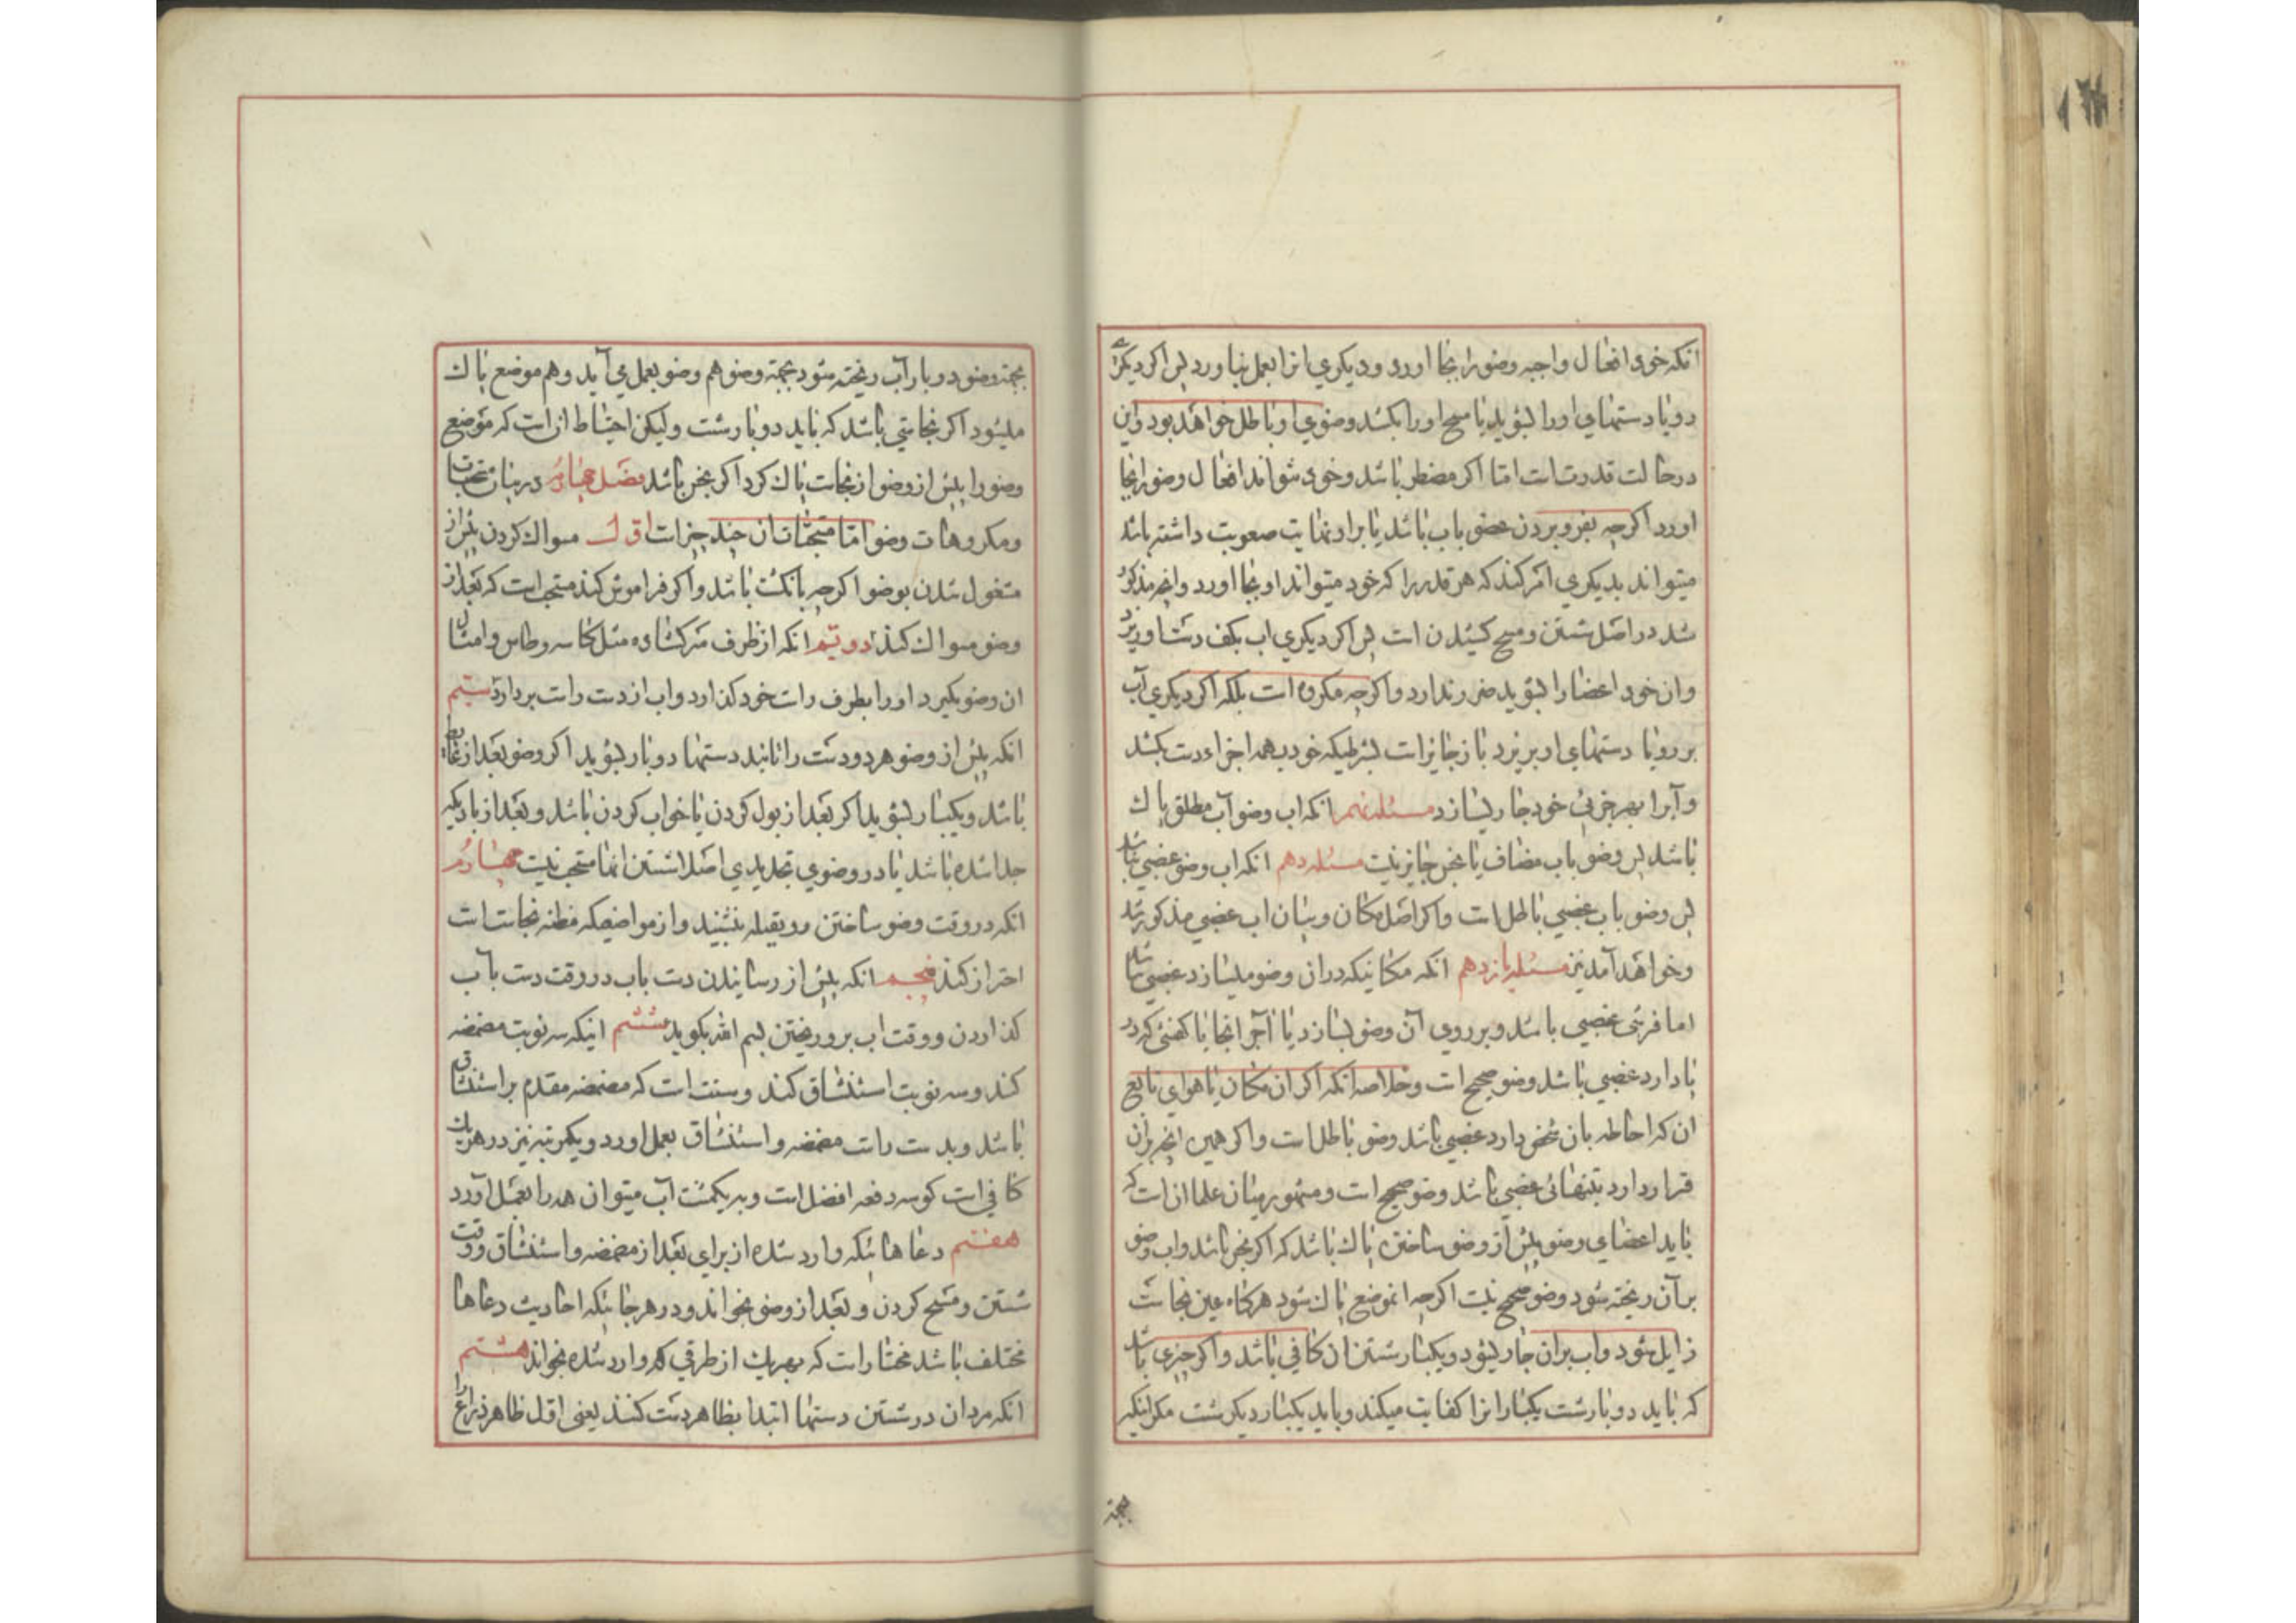 انکه خود افعال واجبه وضو را بجا اورد و دیکری انرا بعمل نیاورد پس اکر دیکری
رو یا دستهای اورا بشوید یا مسح اورا بکشد وضوی او باطل خواهد بود واین
در حالت قدرتست امّا اکر مضطر باشد وخود نتواند افعال وضو را بجا
اورد اکرچه بفرو بردن عضو باب باشد یا براو نهایت صعوبت داشته باشد
میتواند بدیکری امر کند که هر قدر را که خود میتواند او بجا اورد وانچه مذکور
شد در اصل شستن ومسح کشیدن است پس اکر دیکری اب بکف دست او ریزد
وان خود اعضا را بشوید ضرر ندارد واکرچه مکروه است بلکه اکر دیکری آب
بر رو یا دستهای او بریزد باز جایز است بشرطیکه خود بهمه اجزاء دست بکشد
وآبرا بهر جزئی خود جاری سازد مسئله نهم انکه اب وضو آب مطلق پاک
باشد پس وضو باب مضاف یا نجس جایز نیست مسئله دهم انکه اب وضو غصبی نباشد
پس وضو باب غصبی باطل است واکر اصل مکان وبیان اب غصبی مذکور شد
وخواهد آمد نیز مسئله یازدهم انکه مکانیکه دران وضو میسازد غصبی نباشد
اما فرشی غصبی باشد وبر روی آن وضو بسازد یا آجر انجا یا کفشی که در
پا دارد غصبی باشد وضو صحیح است وخلاصه انکه اکر ان مکان یا هوای تابع
ان که احاطه بان شخص دارد غصبی باشد وضو باطل است واکر همین انچه بران
قرار دارد بتنهائی غصبی باشد وضو صحیح است ومشهور میان علما ان است که
باید اعضای وضو پیش از وضو ساختن پاک باشد که اکر نجس باشد واب وضو
بر آن ریخته شود وضو صحیح نیست اکرچه انموضع پاک شود هرکاه عین نجاست
زایل شود واب بران جاری شود ویکبار شستن ان کافی باشد واکر چیزی باشد
که باید دو بار شست یکبار انرا کفایت میکند وباید یکبار دیکر شست مکر انکه
بجهته
بجهته وضو دو بار آب ریخته شود بجهته وضو هم وضو بعمل می آید وهم موضع پاک
میشود اکر نجاستی باشد که باید دو بار شست ولیکن احتیاط ان است که موضع
وضو را پیش از وضو از نجاست پاک کرد اکر نجس باشد فصل چهارم در بیان مستحبات
ومکروهات وضو امّا مستحبّات ان چند چیز است اوّل مسواک کردن پیش از
مشغول شدن بوضو اکرچه بانکشت باشد واکر فراموش کند مستحب است که بعد از
وضو مسواک کند دویّم انکه از ظرف سرکشاده مثل کاسه وطاس وامثال
ان وضو بکیرد اورا بطرف راست خود کذارد واب از دست راست بردارد سیّم
انکه پیش از وضو هر دو دست را تا بند دستها دو بار بشوید اکر وضو بعد از غایط
باشد ویکبار بشوید اکر بعد از بول کردن یا خواب کردن باشد وبعد از بادیکه
جدا شده باشد یا در وضوی تجدیدی اصلا شستن انها مستحب نیست چهارم
انکه در وقت وضو ساختن رو بقبله بنشیند واز مواضعیکه مظنه نجاست است
احتراز کند پنجم انکه پیش از رسانیدن دست باب در وقت دست باب
کذاردن ووقت اب برو ریختن بسم الله بکوید ششم اینکه سه نوبت مضمضه
کند وسه نوبت استنشاق کند وسنت است که مضمضه مقدم بر استنشاق
باشد وبدست راست مضمضه واستنشاق بعمل اورد ویکمرتبه نیز در هریک
کافی است کو سه دفعه افضل است وبه یکمشت آب میتوان همه را بعمل آورد
هفتم دعاهائیکه وارد شده از برای بعد از مضمضه واستنشاق ووقت
شستن ومسح کردن وبعد از وضو بخواند ودر هر جائیکه احادیث دعاها
مختلف باشد مختار است که بهریک از طرقی که وارد شده بخواند هشتم
انکه مردان در شستن دستها ابتدا بظاهر دست کنند یعنی اوّل ظاهر ذراع را